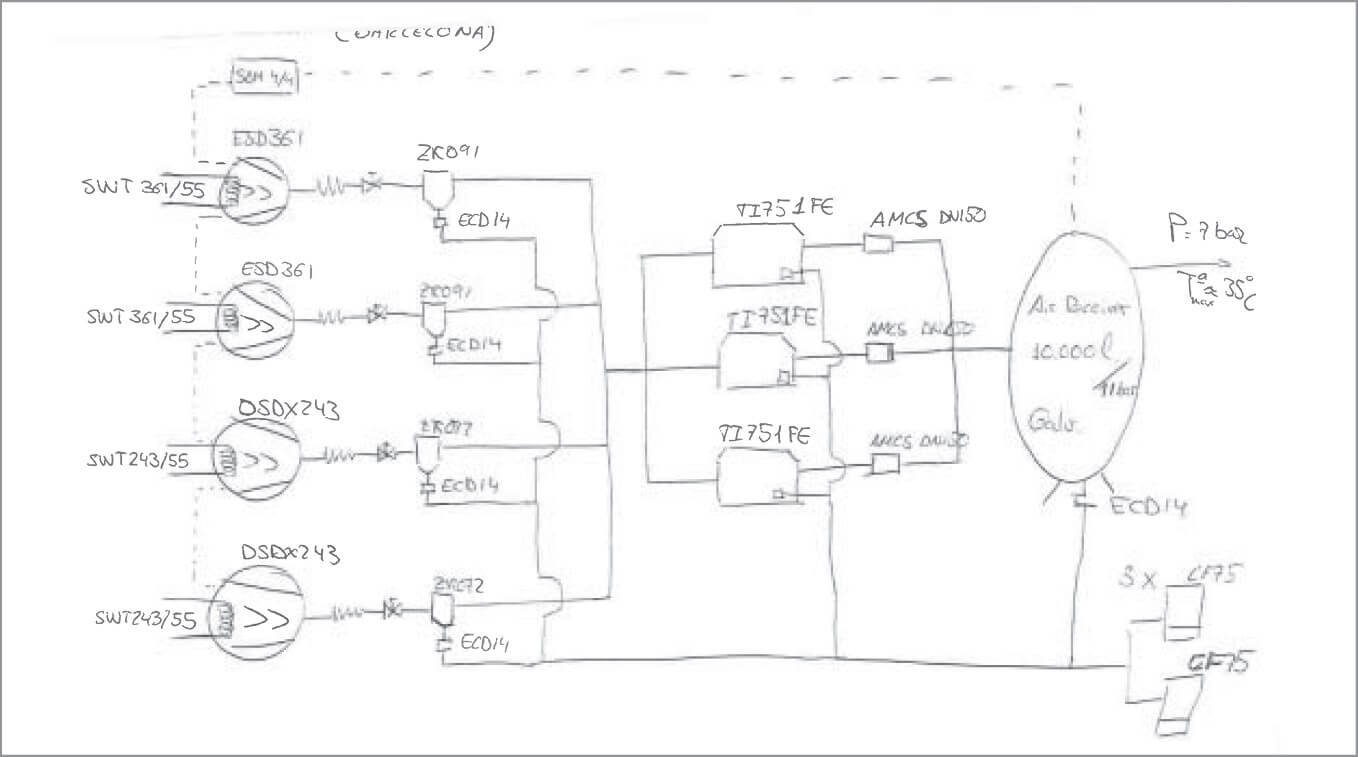 (BARCELONA)
SBM 4/4
ESD361
SWT 361/55
ZK091
ECD14
ESD361
SWT 361/55
ZK091
ECD14
DSDX243
SWT243/55
ZK072
ECD14
DSDX243
SWT243/55
ZK072
ECD14
TI751FE
AMCS DN150
TI751FE
AMCS DN150
TI751FE
AMCS DN150
Air
10.000 l
/11bar
Galv.
P=7 bar
Tª max ≈ 35ºC
ECD14
3 x CF75
CF75